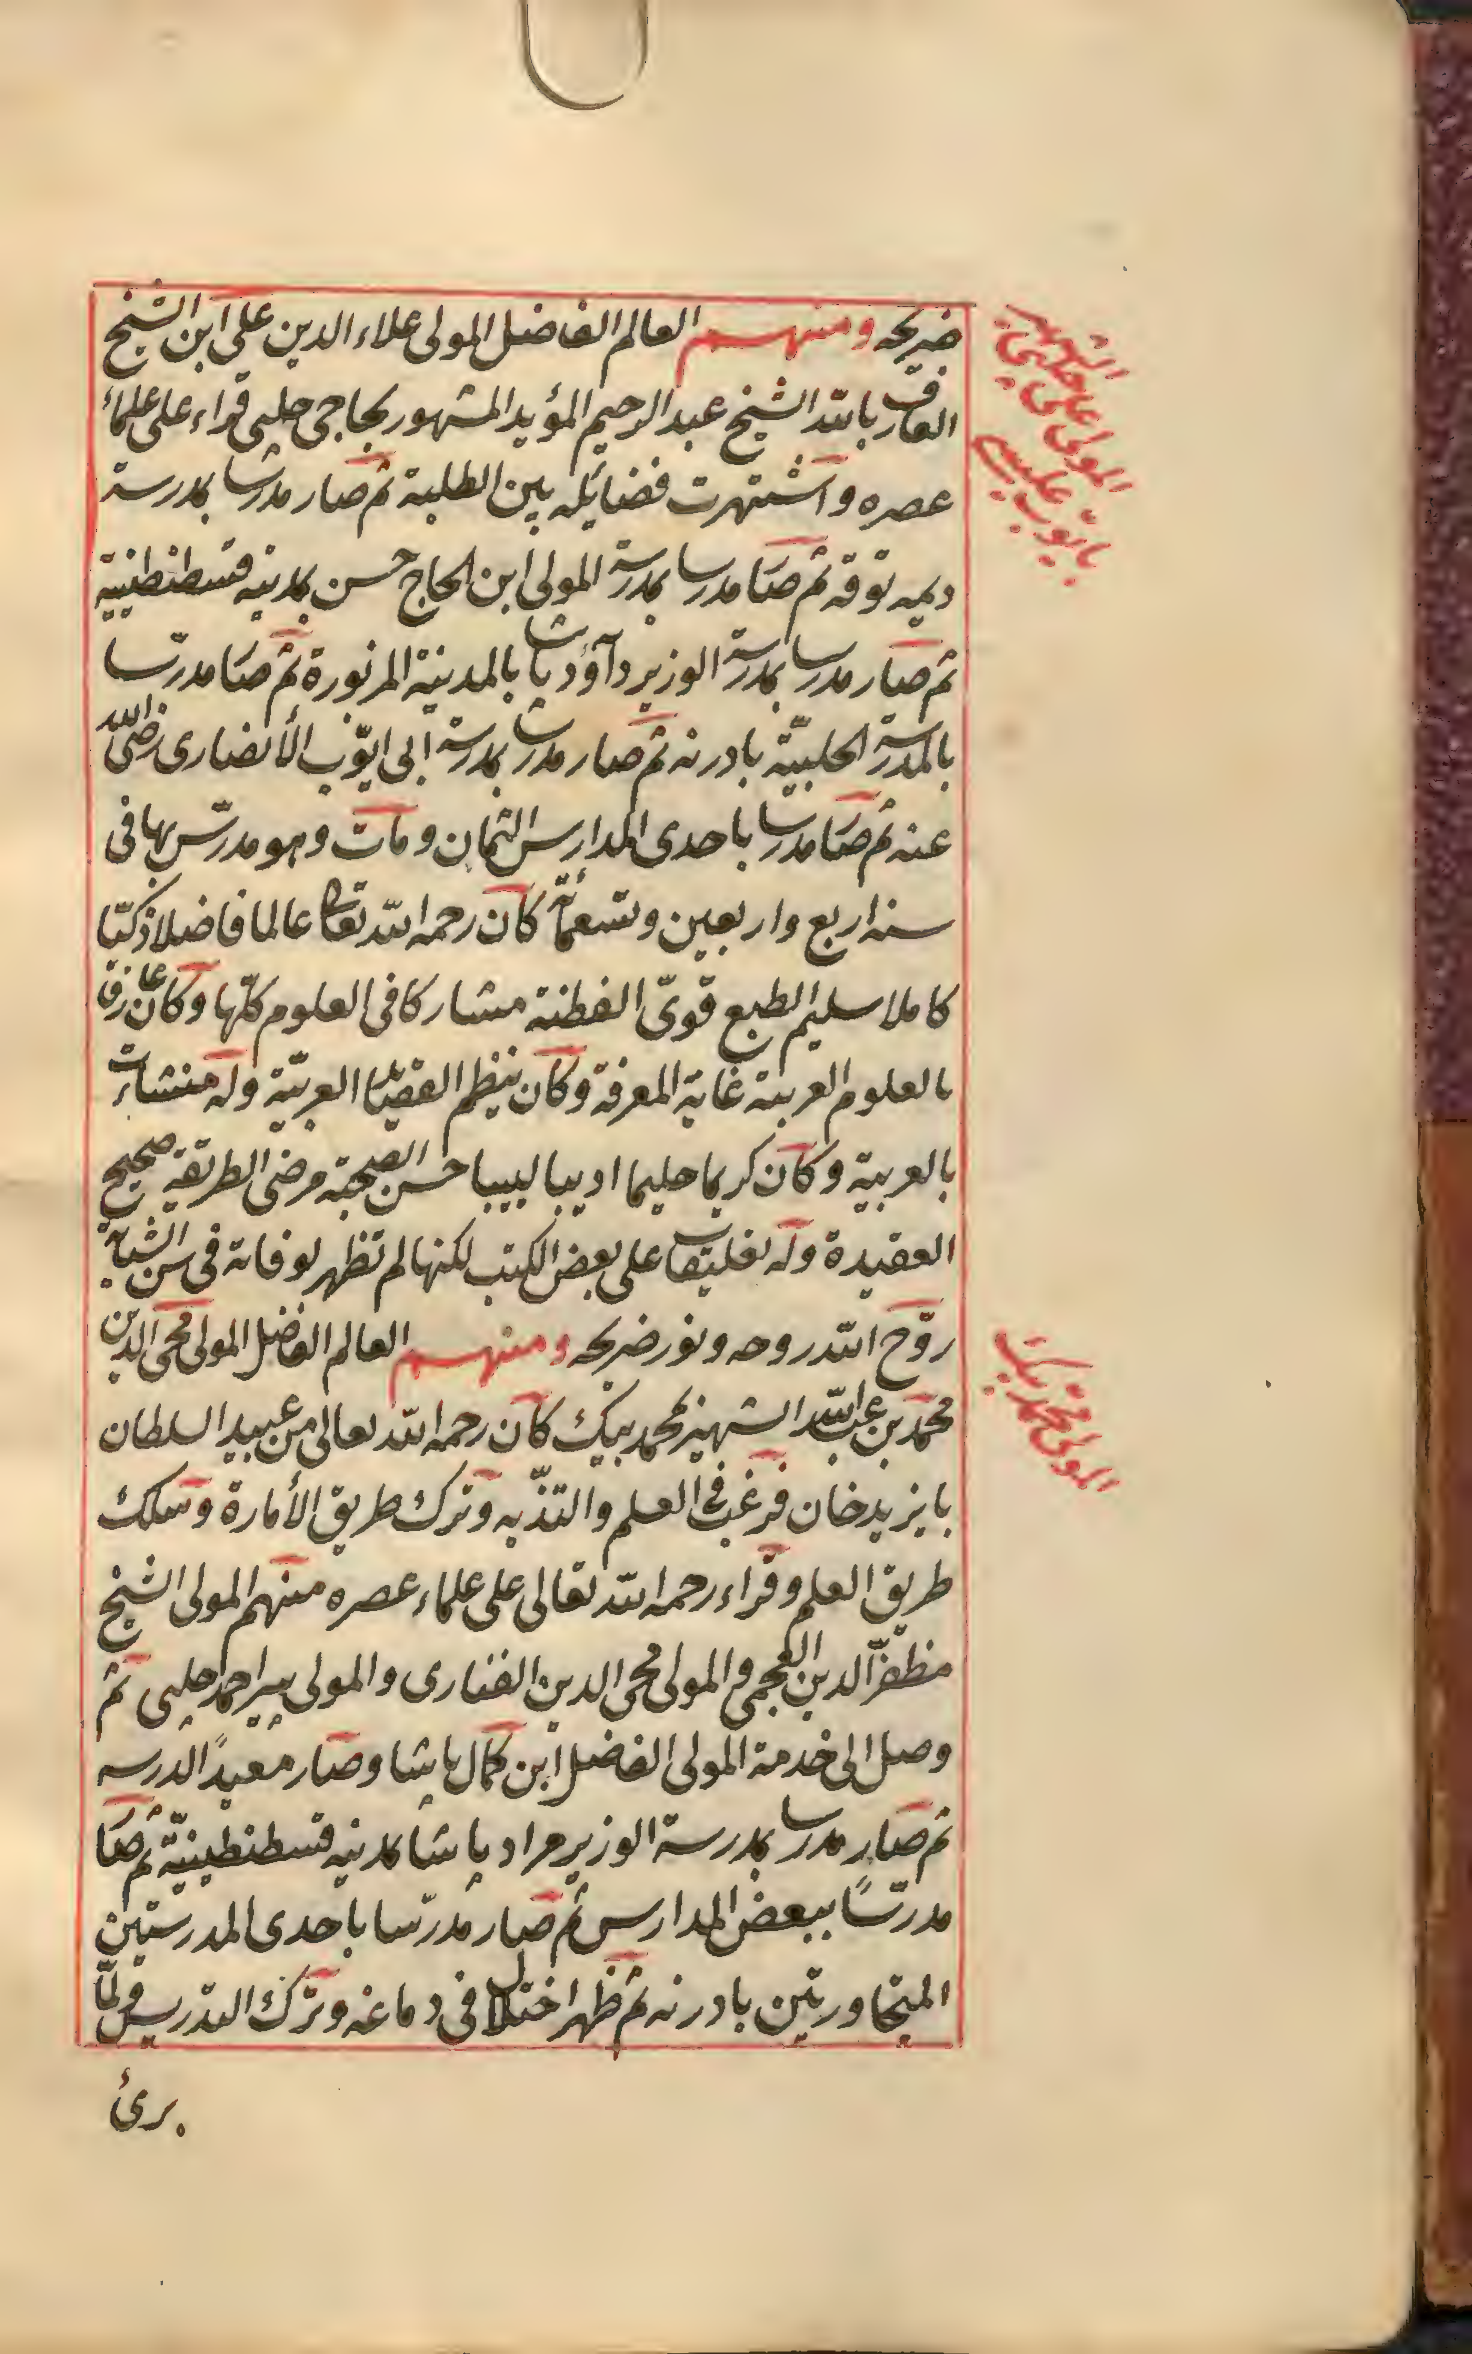 ضريحه ومنهم العالم الفاضل المولى علاء الدين على ابن الشيخ
العارف بالله الشيخ عبد الرحيم المؤيد المشهور بحاجى چلبى قراء على علماء
عصره واشتهرت فضايله بين الطلبة ثم صار مدرسا بمدرسة
ديمه توقه ثم صار مدرسا بمدرسة المولى ابن الحاج حسن بمدينه قسطنطنيية
ثم صار مدرسا بمدرسة الوزير دآؤد پاشا بالمدينة المزبورة ثم صار مدرّسا
بالمدرسة الحلبيّة بادرنه ثم صار مدرسا بمدرسة ابى ايوّب الأنصارى رضى الله
عنه ثم صار مدرسا باحدى المدارس الثمان ومات وهو مدرّس بها فى
سنه اربع واربعين وتسعمائة كان رحمه الله تعالى عالما فاضلا ذكيّا
كاملا سليم الطبع قوىّ الفطنة مشاركا فى العلوم كلّها وكان عارفا
بالعلوم العربية غاية المعرفة وكان ينظم القصايد العربيّة وله منشاءت
بالعربية وكان كريما حليما اديبا لبيبا حسن الصحبة مرضى الطريقه صحيح
العقيدة وله تعليقات على بعض الكتب لكنها لم تظهر لوفاته فى سن الشباب
روّح الله روحه ونور ضريحه ومنهم العالم الفاضل المولى محى الدين
محمّد بن عبد الله الشهير بمحمد بيك كان رحمه الله تعالى من عبيد السلطان
بايزيد خان فرغب فى العلم والتذّبه وترك طريق الأمارة وسلك
طريق العلم وقراء رحمه الله تعالى على علماء عصره منهم المولى الشيخ
مظفرّ الدين العجمى والمولى محى الدين الفنارى والمولى پير احمد چلبى ثم
وصل الى خدمة المولى الفاضل ابن كمال پاشا وصار معيدًا لدرسه
ثم صار مدرسا بمدرسة الوزير مراد پاشا بمدينه قسطنطينيّة ثم صار
مدرّسًا ببعض المدارس ثم صار مدرّسا باحدى المدرستين
المتجاورتين بادرنه ثم ظهر اختلال فى دماغه وترك التدريس ولمّا
برئ
المولى على چلبى الشهير
المولى محمد بيك